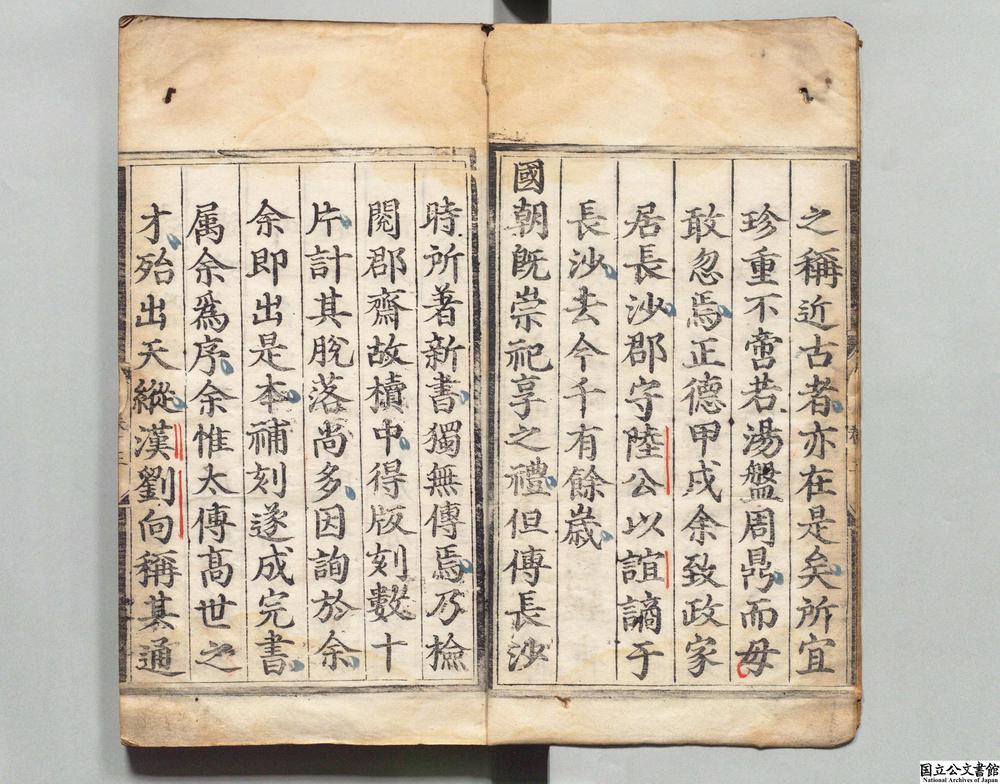 之稱近古者亦在是矣所宜
珍重不啻若湯盤周鼎而毋
敢忽焉正德甲戌余致政家
居長沙郡守陸公以誼謫于
長沙去今千有餘歲
國朝既崇祀享之禮但傳長沙
時所著新書獨無傳焉乃檢
閱郡齋故櫝中得版刻數十
片計其脫落尚多因詢於余
余即出是本補刻遂成完書
属余爲序余惟太傅高世之
才殆出天縱漢劉向稱其通
国立公文書館
National Archives of Japan